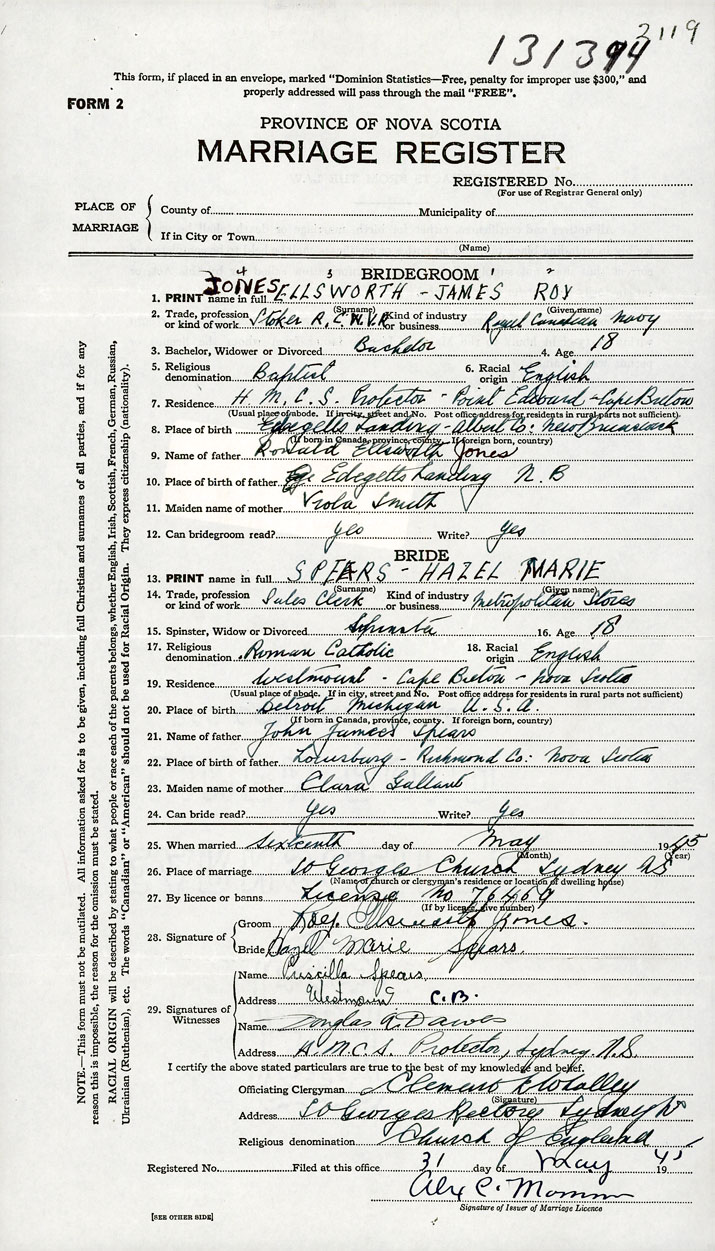 131394
2119
This form, if placed in an envelope, marked "Dominion Statistics—Free, penalty for improper use $300," and
properly addressed will pass through the mail "FREE".
FORM 2
PROVINCE OF NOVA SCOTIA
MARRIAGE REGISTER
REGISTERED No.
(For use of Registrar General only)
PLACE OF MARRIAGE
County of Municipality of
If in City or Town
(Name)
4 3 BRIDEGROOM 1 2
1. PRINT name in full JONES ELLSWORTH - JAMES ROY
(Surname) (Given name)
2. Trade, profession or kind of work Stoker R.C.N.V.R. Kind of industry or business Royal Canadian Navy
3. Bachelor, Widower or Divorced Bachelor 4. Age 18
5. Religious denomination Baptist 6. Racial origin English
7. Residence H.M.C.S. Protector - Point Edward - Cape Breton
(Usual place of abode. If in city, street and No. Post office address for residents in rural parts not sufficient)
8. Place of birth Edgetts Landing - Albert Co: New Brunswick
(If born in Canada, province, county. If foreign born, country)
9. Name of father Ronald Ellsworth Jones
10. Place of birth of father Edegetts Landing N.B
11. Maiden name of mother Viola Smith
12. Can bridegroom read? yes Write? yes
BRIDE
13. PRINT name in full SPEARS - HAZEL MARIE
(Surname) (Given name)
14. Trade, profession or kind of work Sales Clerk Kind of industry or business Metropolitan Stores
15. Spinster, Widow or Divorced Spinster 16. Age 18
17. Religious denomination Roman Catholic 18. Racial origin English
19. Residence Westmount - Cape Breton - Nova Scotia
(Usual place of abode. If in city, street and No. Post office address for residents in rural parts not sufficient)
20. Place of birth Detroit Michigan U.S.A.
(If born in Canada, province, county. If foreign born, country)
21. Name of father John James Spears
22. Place of birth of father Richmond Co: Nova Scotia
23. Maiden name of mother Clara Gallant
24. Can bride read? yes Write? yes
25. When married sixteenth day of May 1945
(Month) (Year)
26. Place of marriage St Georges Church Sydney NS
(Name of church or clergyman's residence or location of dwelling house)
27. By licence or banns License No 76469
(If by licence, give number)
28. Signature of
Groom Ellsworth Jones.
Bride Hazel Marie Spears.
29. Signatures of Witnesses
Name Priscilla Spears
Address Westmount C.B.
Name Douglas R. Dawes
Address H.M.C.S. Protector, Sydney N.S.
I certify the above stated particulars are true to the best of my knowledge and belief.
Officiating Clergyman Clement E Whalley
(Signature)
Address St Georges Rectory Sydney NS
Religious denomination Church of England
Registered No. Filed at this office 31 day of May 1945
Signature of Issuer of Marriage Licence
[SEE OTHER SIDE]
NOTE.—This form must not be mutilated. All information asked for is to be given, including full Christian and surnames of all parties, and if for any
reason this is impossible, the reason for the omission must be stated.
RACIAL ORIGIN will be described by stating to what people or race each of the parents belongs, whether English, Irish, Scottish, French, German, Russian,
Ukrainian (Ruthenian), etc. The words "Canadian" or "American" should not be used for Racial Origin. They express citizenship (nationality).